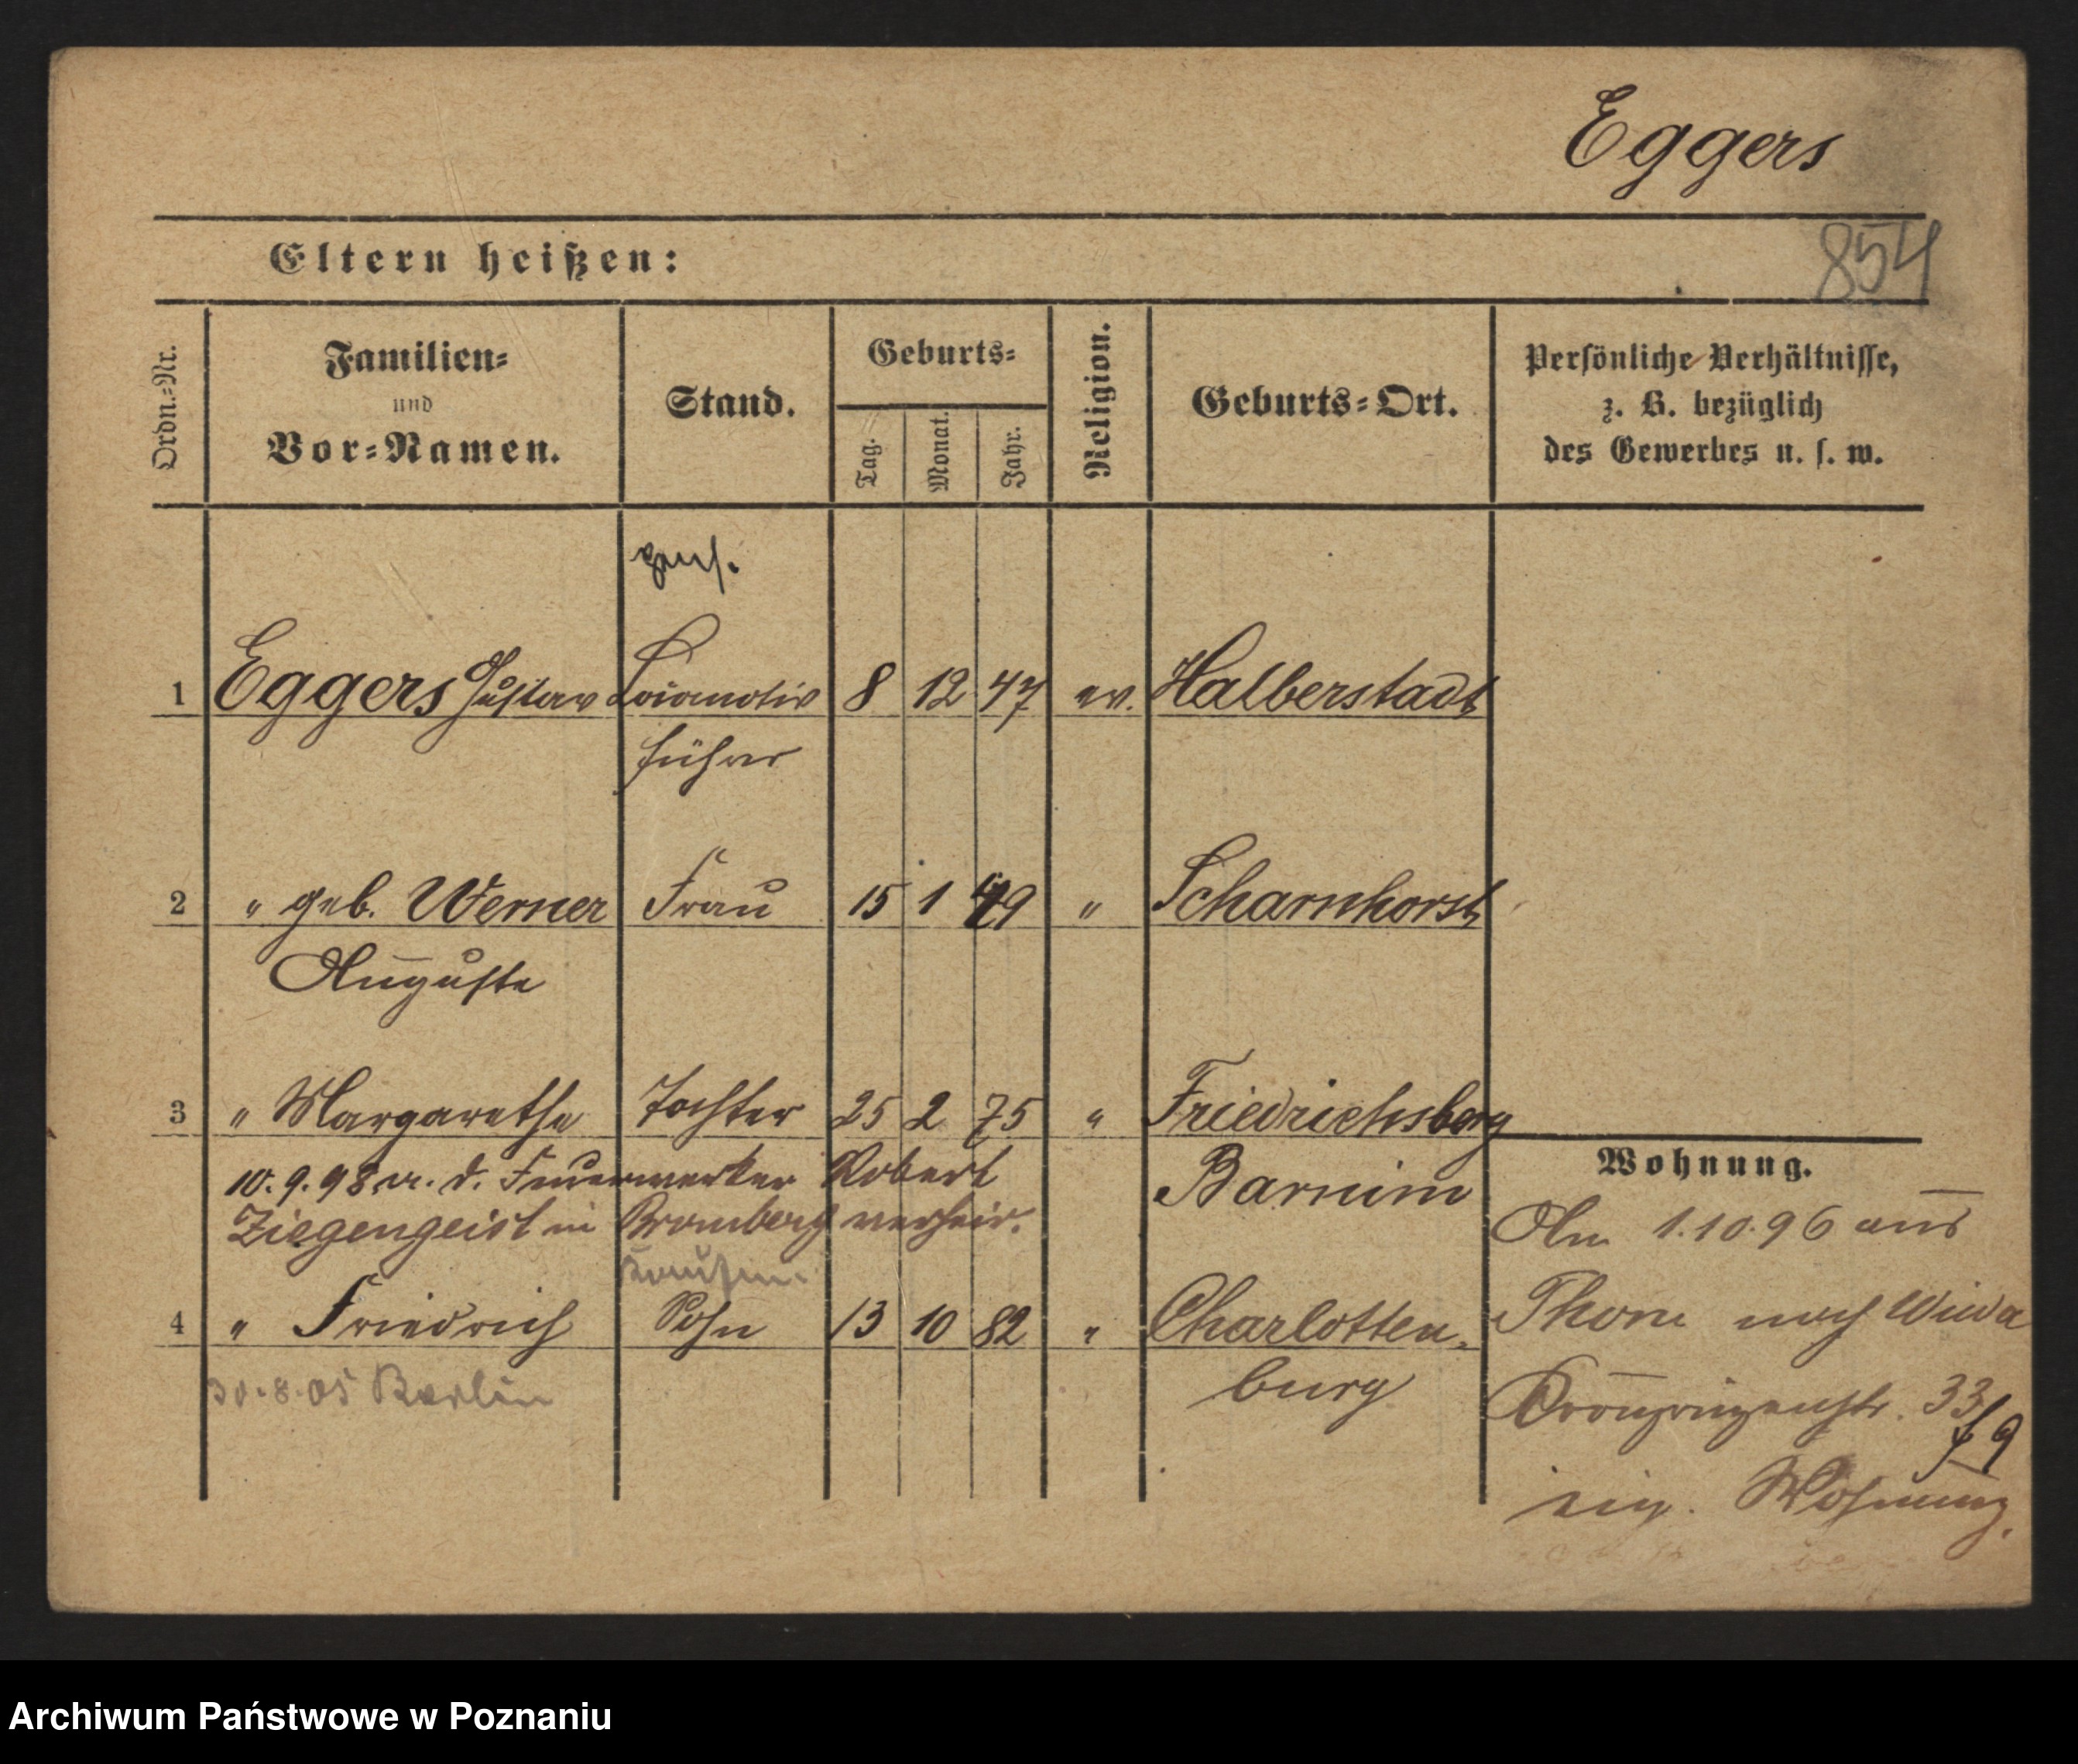 Eggers
Eltern heißen:
854
Ordn.=Nr.
Familien=
und
Vor=Namen.
Stand.
Geburts=
Tag.
Monat.
Jahr.
Religion.
Geburts=Ort.
Persönliche Verhältnisse,
z. B. bezüglich
des Gewerbes u. s. w.
pens.
1 Eggers Gustav Locomotiv 8 12 47 ev. Halberstadt
führer
2 " geb. Werner Frau 15 1 49 " Scharnhorst
Auguste
3 " Margarethe Tochter 25 2 75 " Friedrichsberg
10.9.98 m. d. Feuerwerker Robert
Barnim
Ziegengeist in Bromberg verheir.
Kaufm.
4 " Friedrich Sohn 13 10 82 " Charlotten-
burg
30.8.05 Berlin
Wohnung.
Am 1.10.96 aus
Thorn nach Wilda
Kronprinzenstr. 33
f 9
eig. Wohnung.
Archiwum Państwowe w Poznaniu